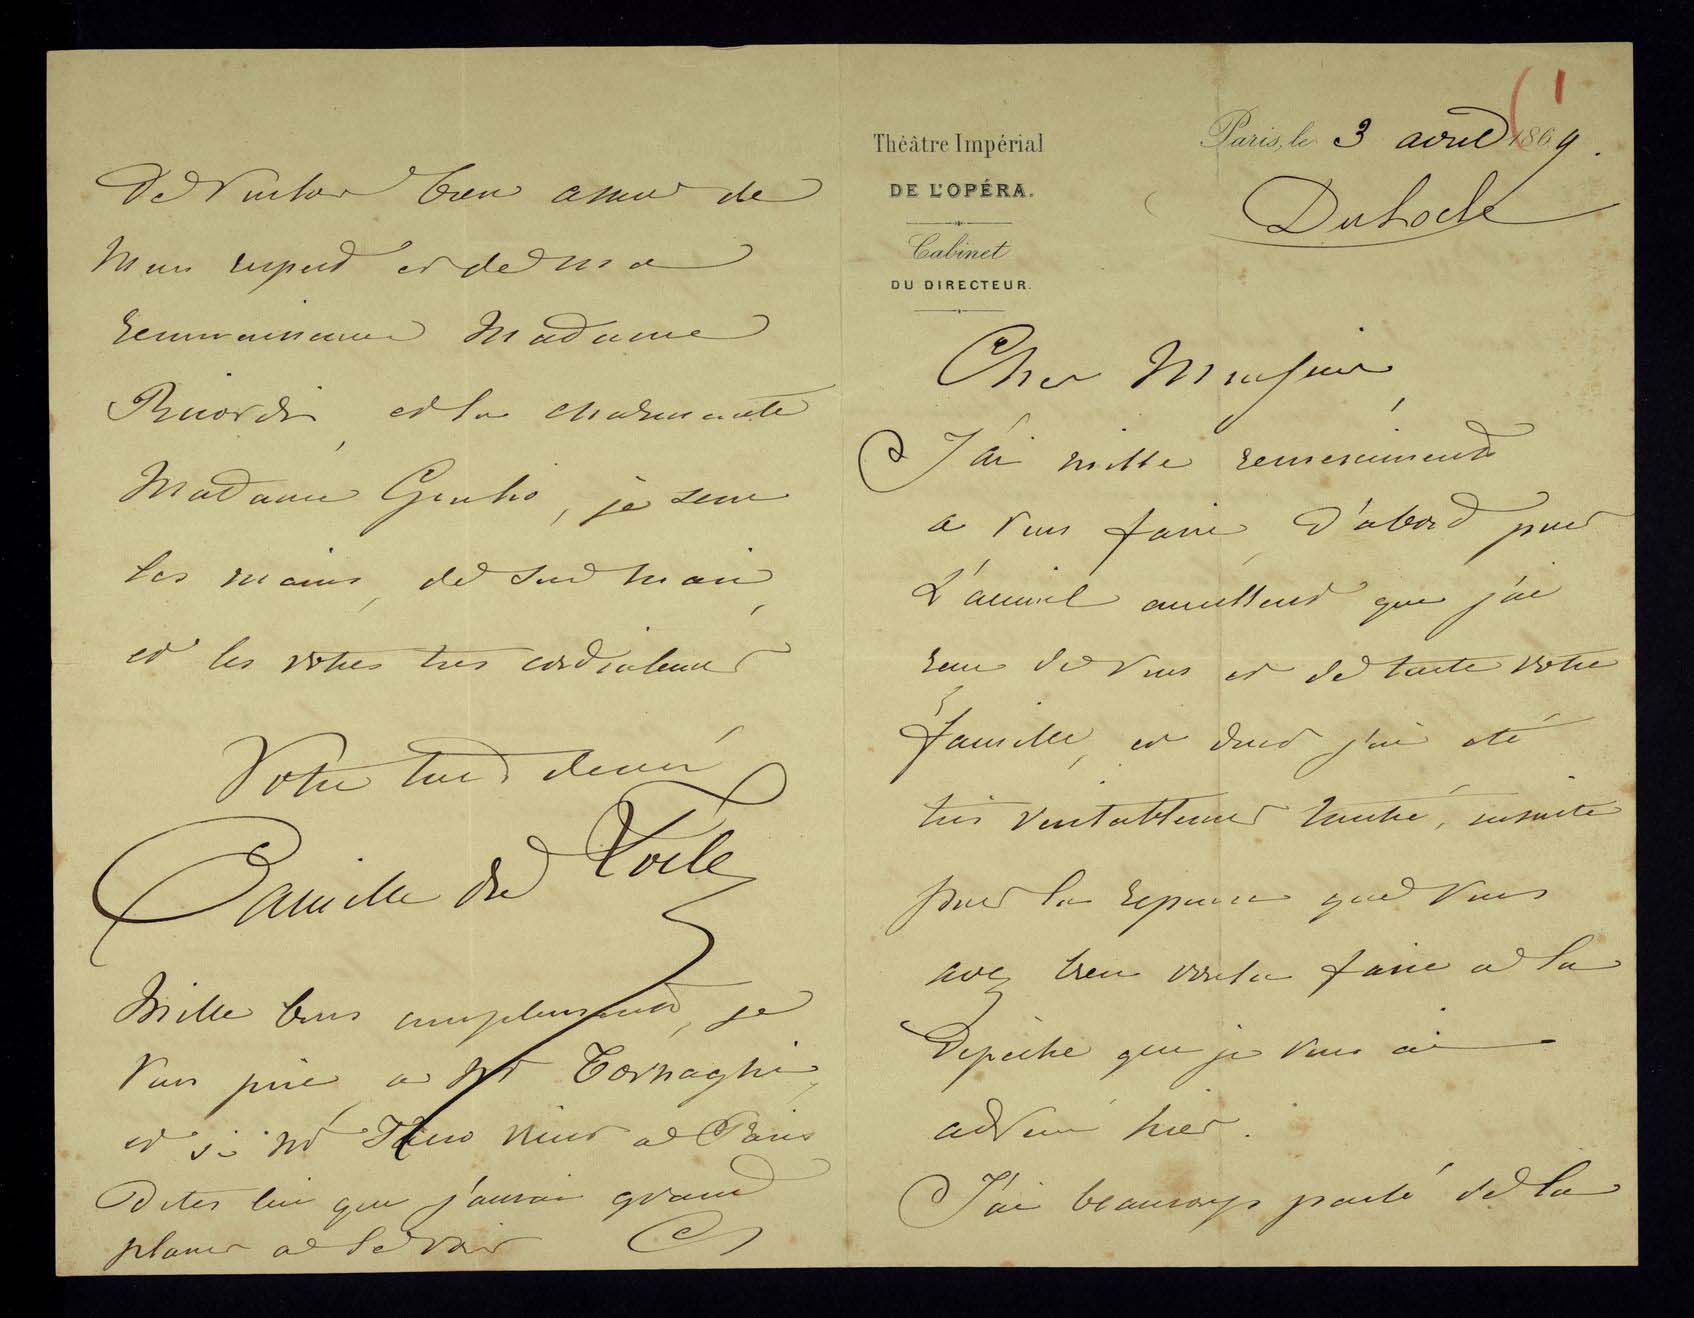 Théâtre Impérial
DE L'OPÉRA.
Cabinet
DU DIRECTEUR.
1
Paris, le 3 avril 1869.
DuLocle
Cher Monsieur
J'ai mille remerciments
a vous faire, D'abord pour
L'accueil excellent que j'ai
recu de vous et de toute votre
famille, et dont j'ai été
très veritablement touché, ensuite
pour la reponse que vous
avez bien voulu faire a la
Depêche que je vous ai
adressé hier.
J'ai beaucoup parlé de la
bien assurer de
mon respect et de ma
reconnaissance Madame
Ricordi, et la charmante
Madame Giulio, je serre
les mains, de son mari,
et les votres tres cordialement
Votre tout dévoué
Camille du Locle
Mille bons complimens, je
vous prie a Mr Tornaghi,
et si Mr vient a Paris
Dites lui que j'aurai grand
plaisir a le voir